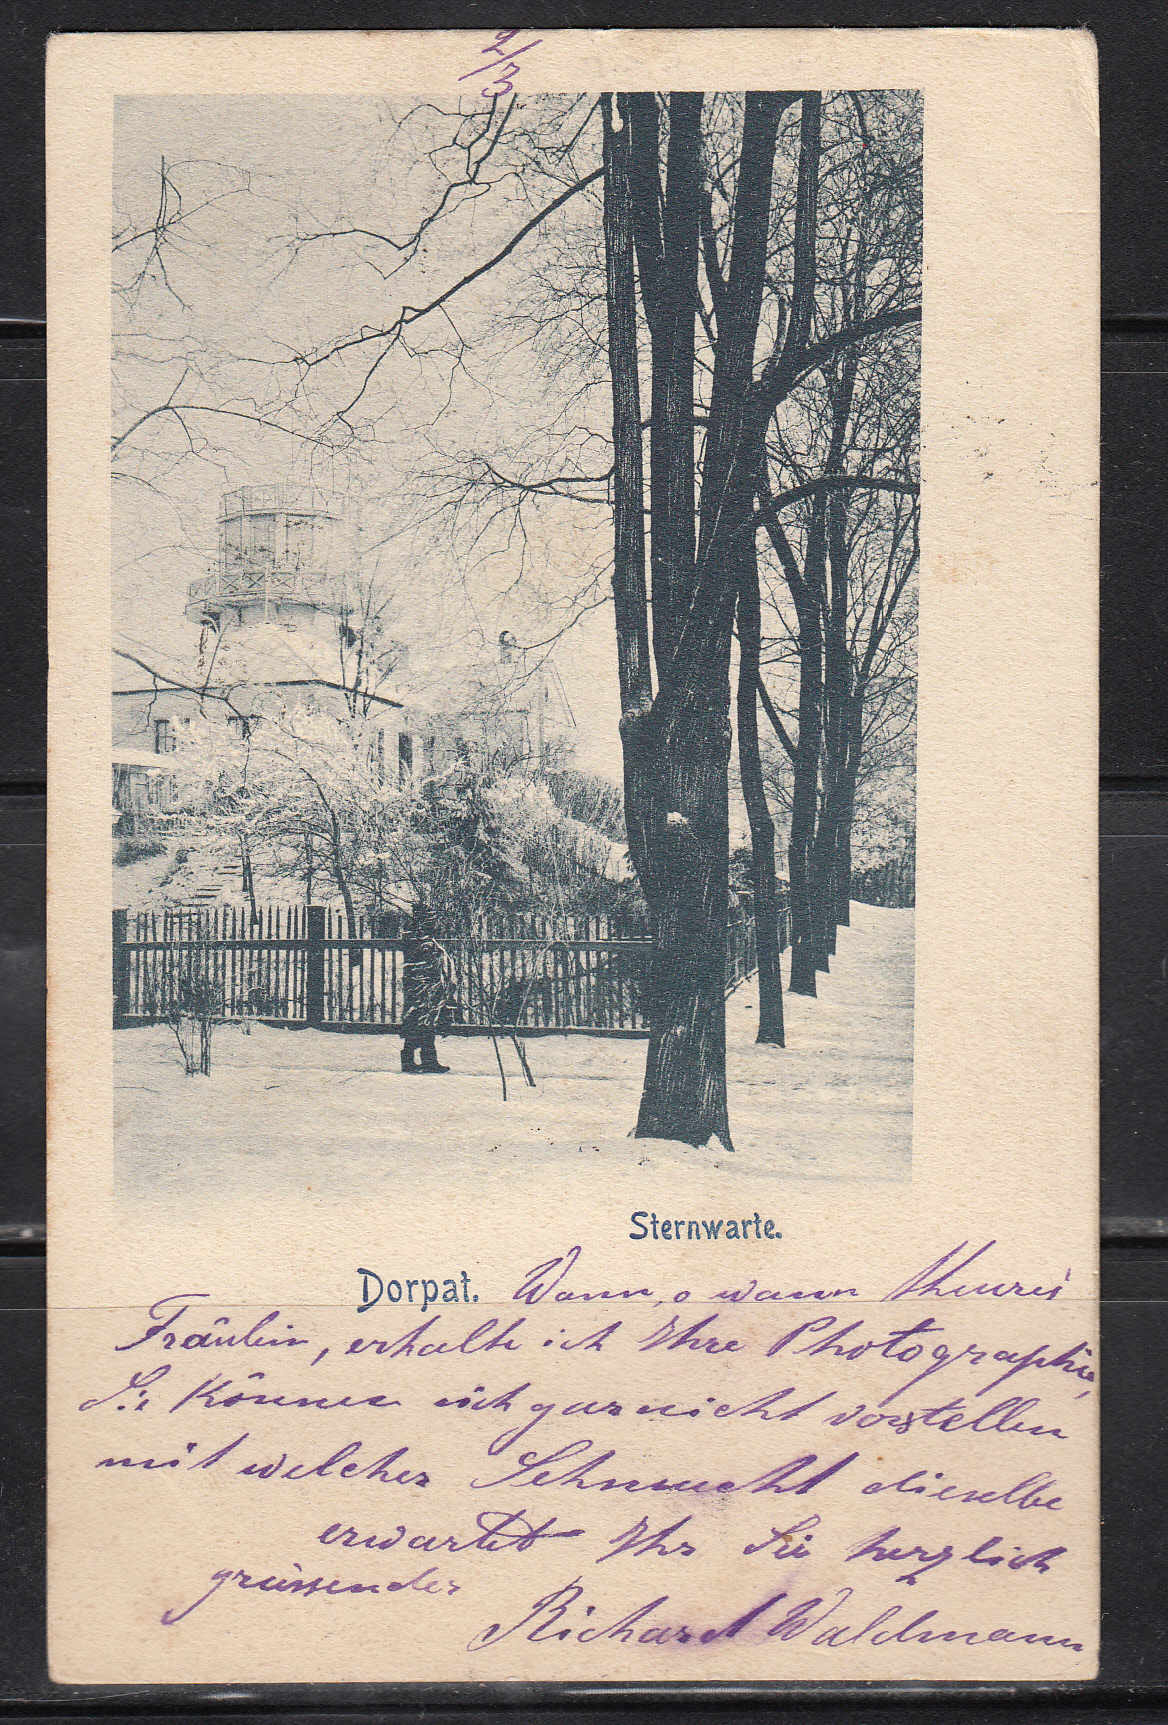 2/3
Sternwarte.
Dorpat. Wann, o wann theures
Fräulein, erhalte ich Ihre Photographie,
Sie können sich gar nicht vorstellen
mit welcher Sehnsucht dieselbe
erwartet Ihr Sie herzlich
grüssender
Richard Waldmann